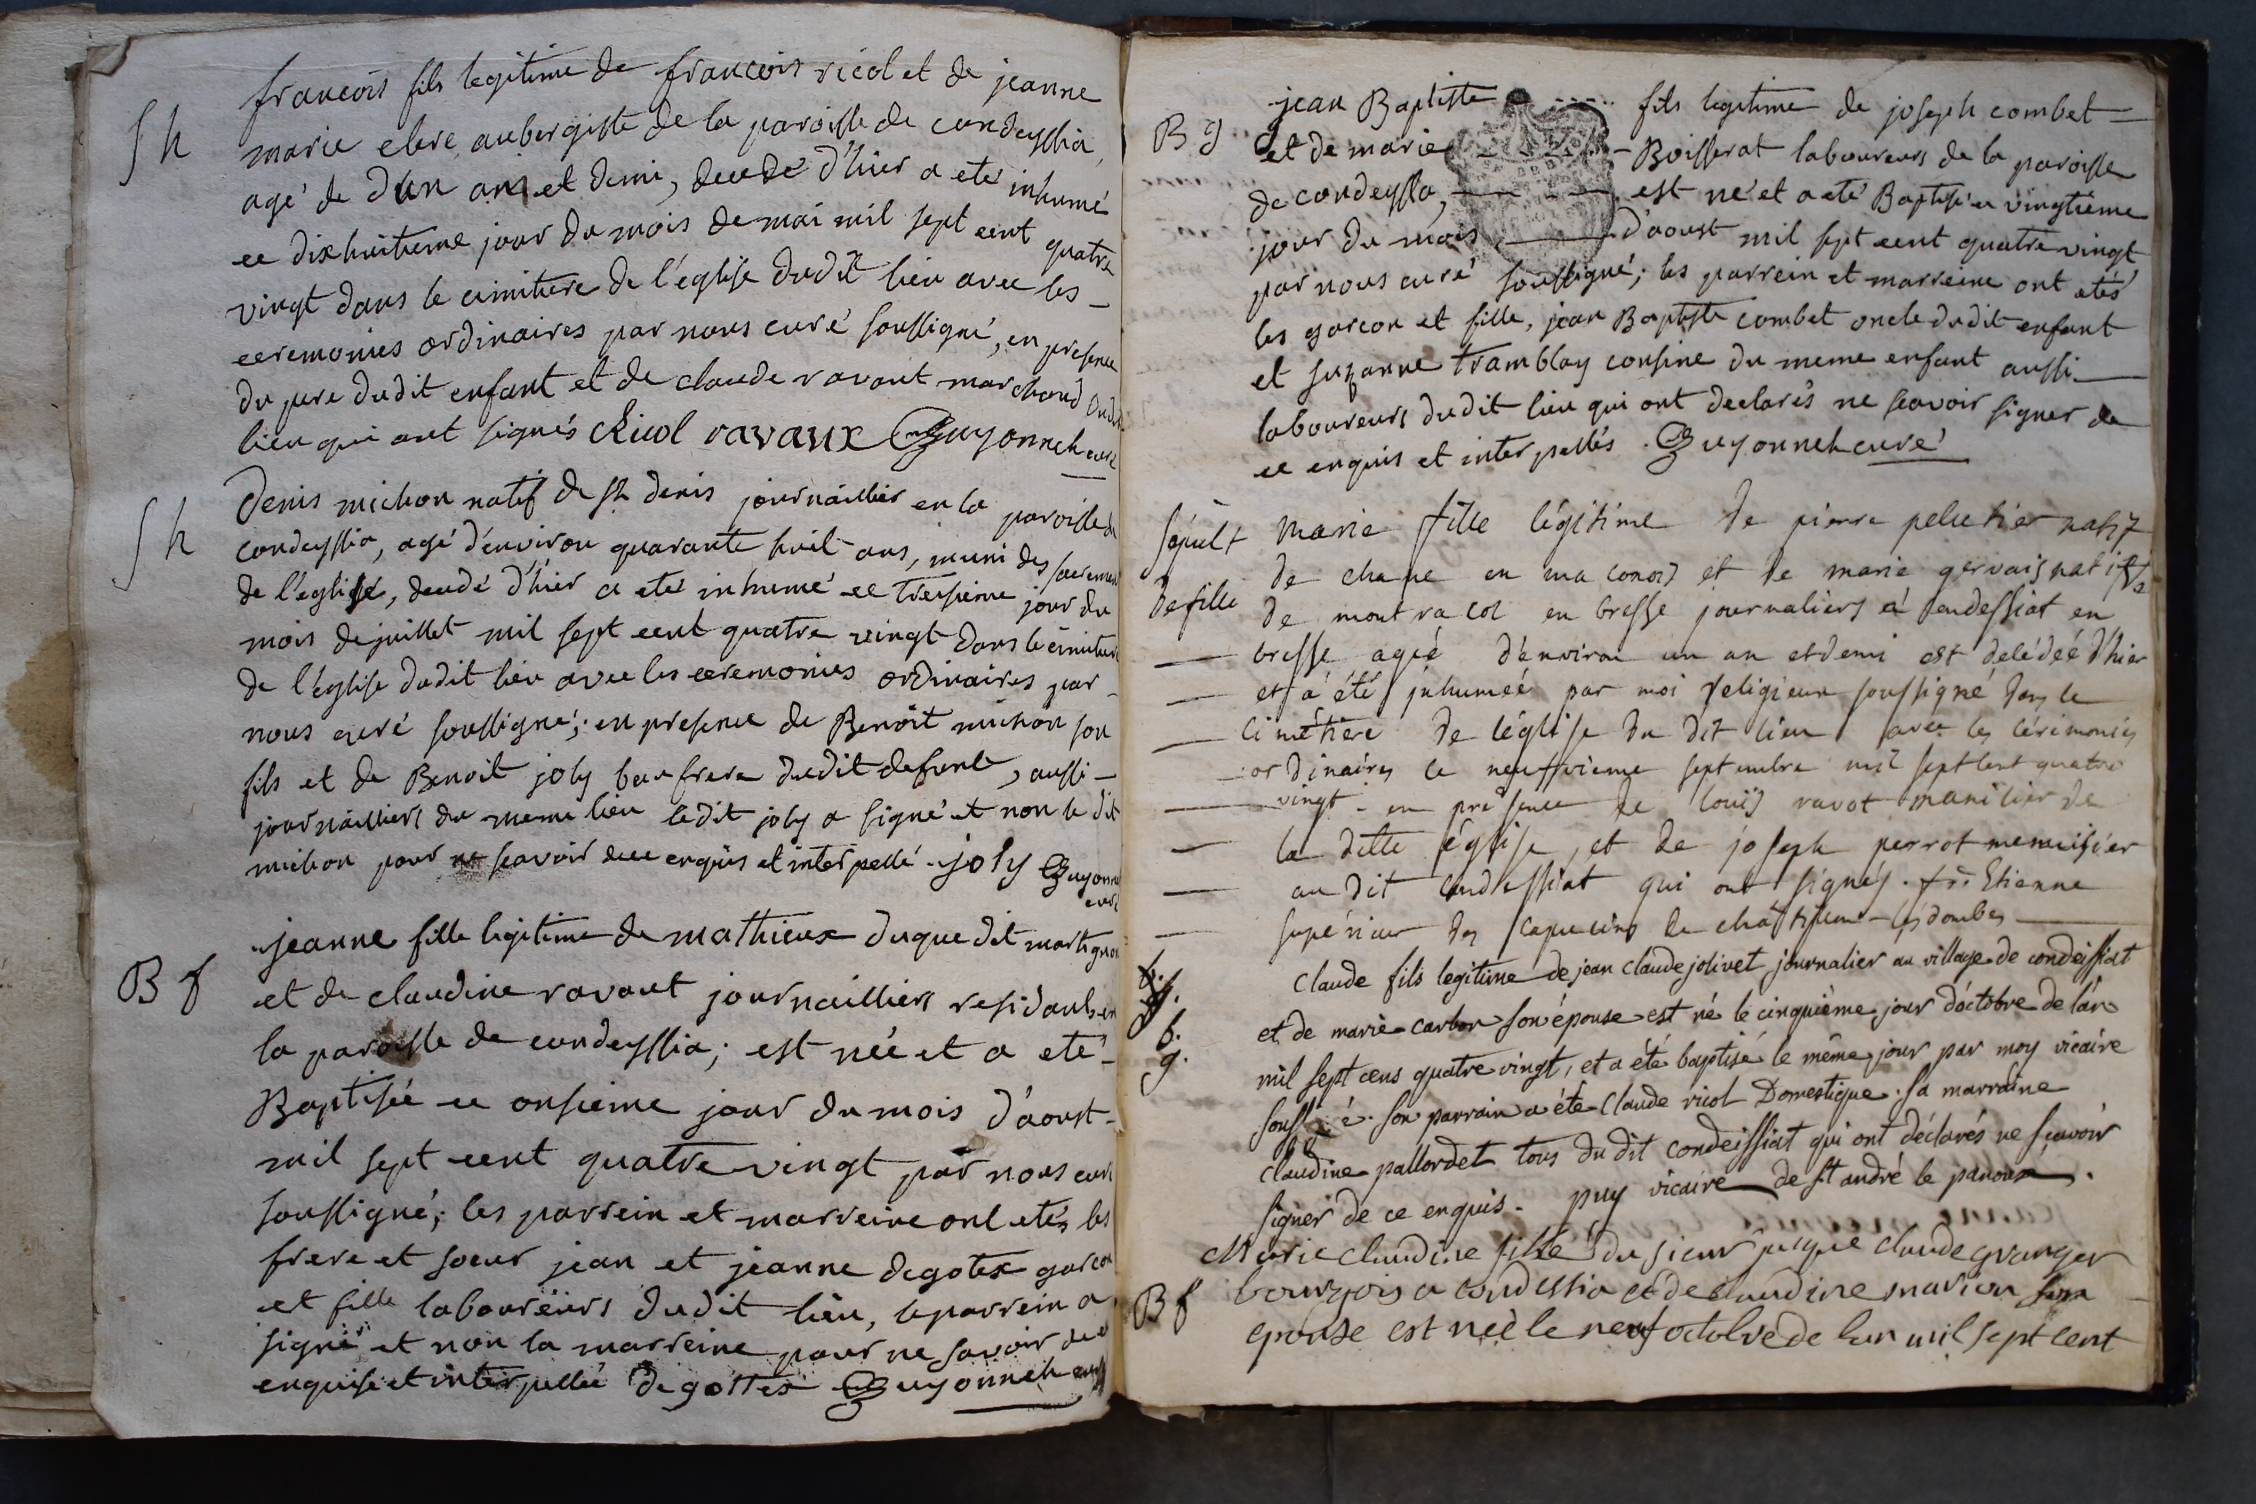 francois fils legitime de francois ricol et de jeanne
S h
marie clere aubergiste de la paroisse de condeyssia,
agé de d'un ans et demi, decedé d'hier a eté inhumé
ce dixhuitieme jour du mois de mai mil sept cent quatre
vingt dans le cimitiere de l'église dudit lieu avec les
ceremonies ordinaires par nous curé soussigné, en presence
du pere dudit enfant et de claude ravaut marchand dudit
lieu qui ont signés Ricol ravaux Guyonneh curé
S h
Denis michon natif de st denis journaillier en la paroisse de
condeyssia, agé d'environ quarante huit ans, muni des sacrements
de l'église, decedé d'hier a eté inhumé ce treisieme jour du
mois de juillet mil sept cent quatre vingt dans le cimitiere
de l'église dudit lieu avec les ceremonies ordinaires par
nous curé soussigné; en presence de Benoit michon son
fils et de Benoit joly beaufrere dudit defunt, aussi
journailliers du meme lieu ledit joly a signé et non le dit
michon pour ne scavoir de ce enquis et interpellé. joly Guyonneh
curé
B f
jeanne fille legitime de mathieux duque dit martignon
et de claudine ravaut journailliers residants en
la paroisse de condeyssia; est née et a eté
Baptisée ce onsieme jour du mois d'aoust
mil sept cent quatre vingt par nous curé
soussigné; les parrein et marreine ont etés les
frere et soeur jean et jeanne degotex garcon
et fille laboureurs dudit lieu, le parrein a
signé et non la marreine pour ne savoir de ce
enquise et interpellée degottex Guyonneh curé
B g
jean Baptiste fils legitime de joseph combet
et de marie Boisserat laboureurs de la paroisse
de condeyssia, est né et a eté Baptisé ce vingtieme
jour du mois d'aoust mil sept cent quatre vingt
par nous curé soussigné; les parrein et marreine ont etés
les garcon et fille, jean Baptiste combet oncle dudit enfant
et suzanne tramblay cousine du meme enfant aussi
laboureurs dudit lieu qui ont declarés ne scavoir signer de
ce enquis et interpellés. Guyonneh curé
sépult
de fille
marie fille légitime de pierre peletier natif
de chane en maconois et de marie gervais natifve
de montracol en bresse journaliers à condessiat en
bresse agée d'environ un an et demi est décédée d'hier
et a été inhumée par moi religieux soussigné dans le
cimetière de l'église du dit lieu avec les cérémonies
ordinaires ce neufvieme septembre mil sept cent quatre
vingt en présence de louis ravot manilier de
la ditte église, et de joseph perrot menuisier
au dit condessiat qui ont signés. fr. Etienne
supérieur des capucins de chatillon-les dombes
b.
g.
claude fils legitime de jean claude jolivet journalier au village de condeissiat
et de marie carbon son épouse est né le cinquième jour d'octobre de l'an
mil sept cens quatre vingt, et a été baptisé le même jour par moy vicaire
souss é. son parrain a été claude ricol Domestique. sa marraine
claudine pallordet tous du dit condeissiat qui ont déclarés ne scavoir
signer de ce enquis. puy vicaire de st andré le panoux.
B f
Marie claudine fille du sieur jacque claude granger
bourgois a condessia et de claudine marion son
epouse est neé le neuf octobre de lan mil sept cent